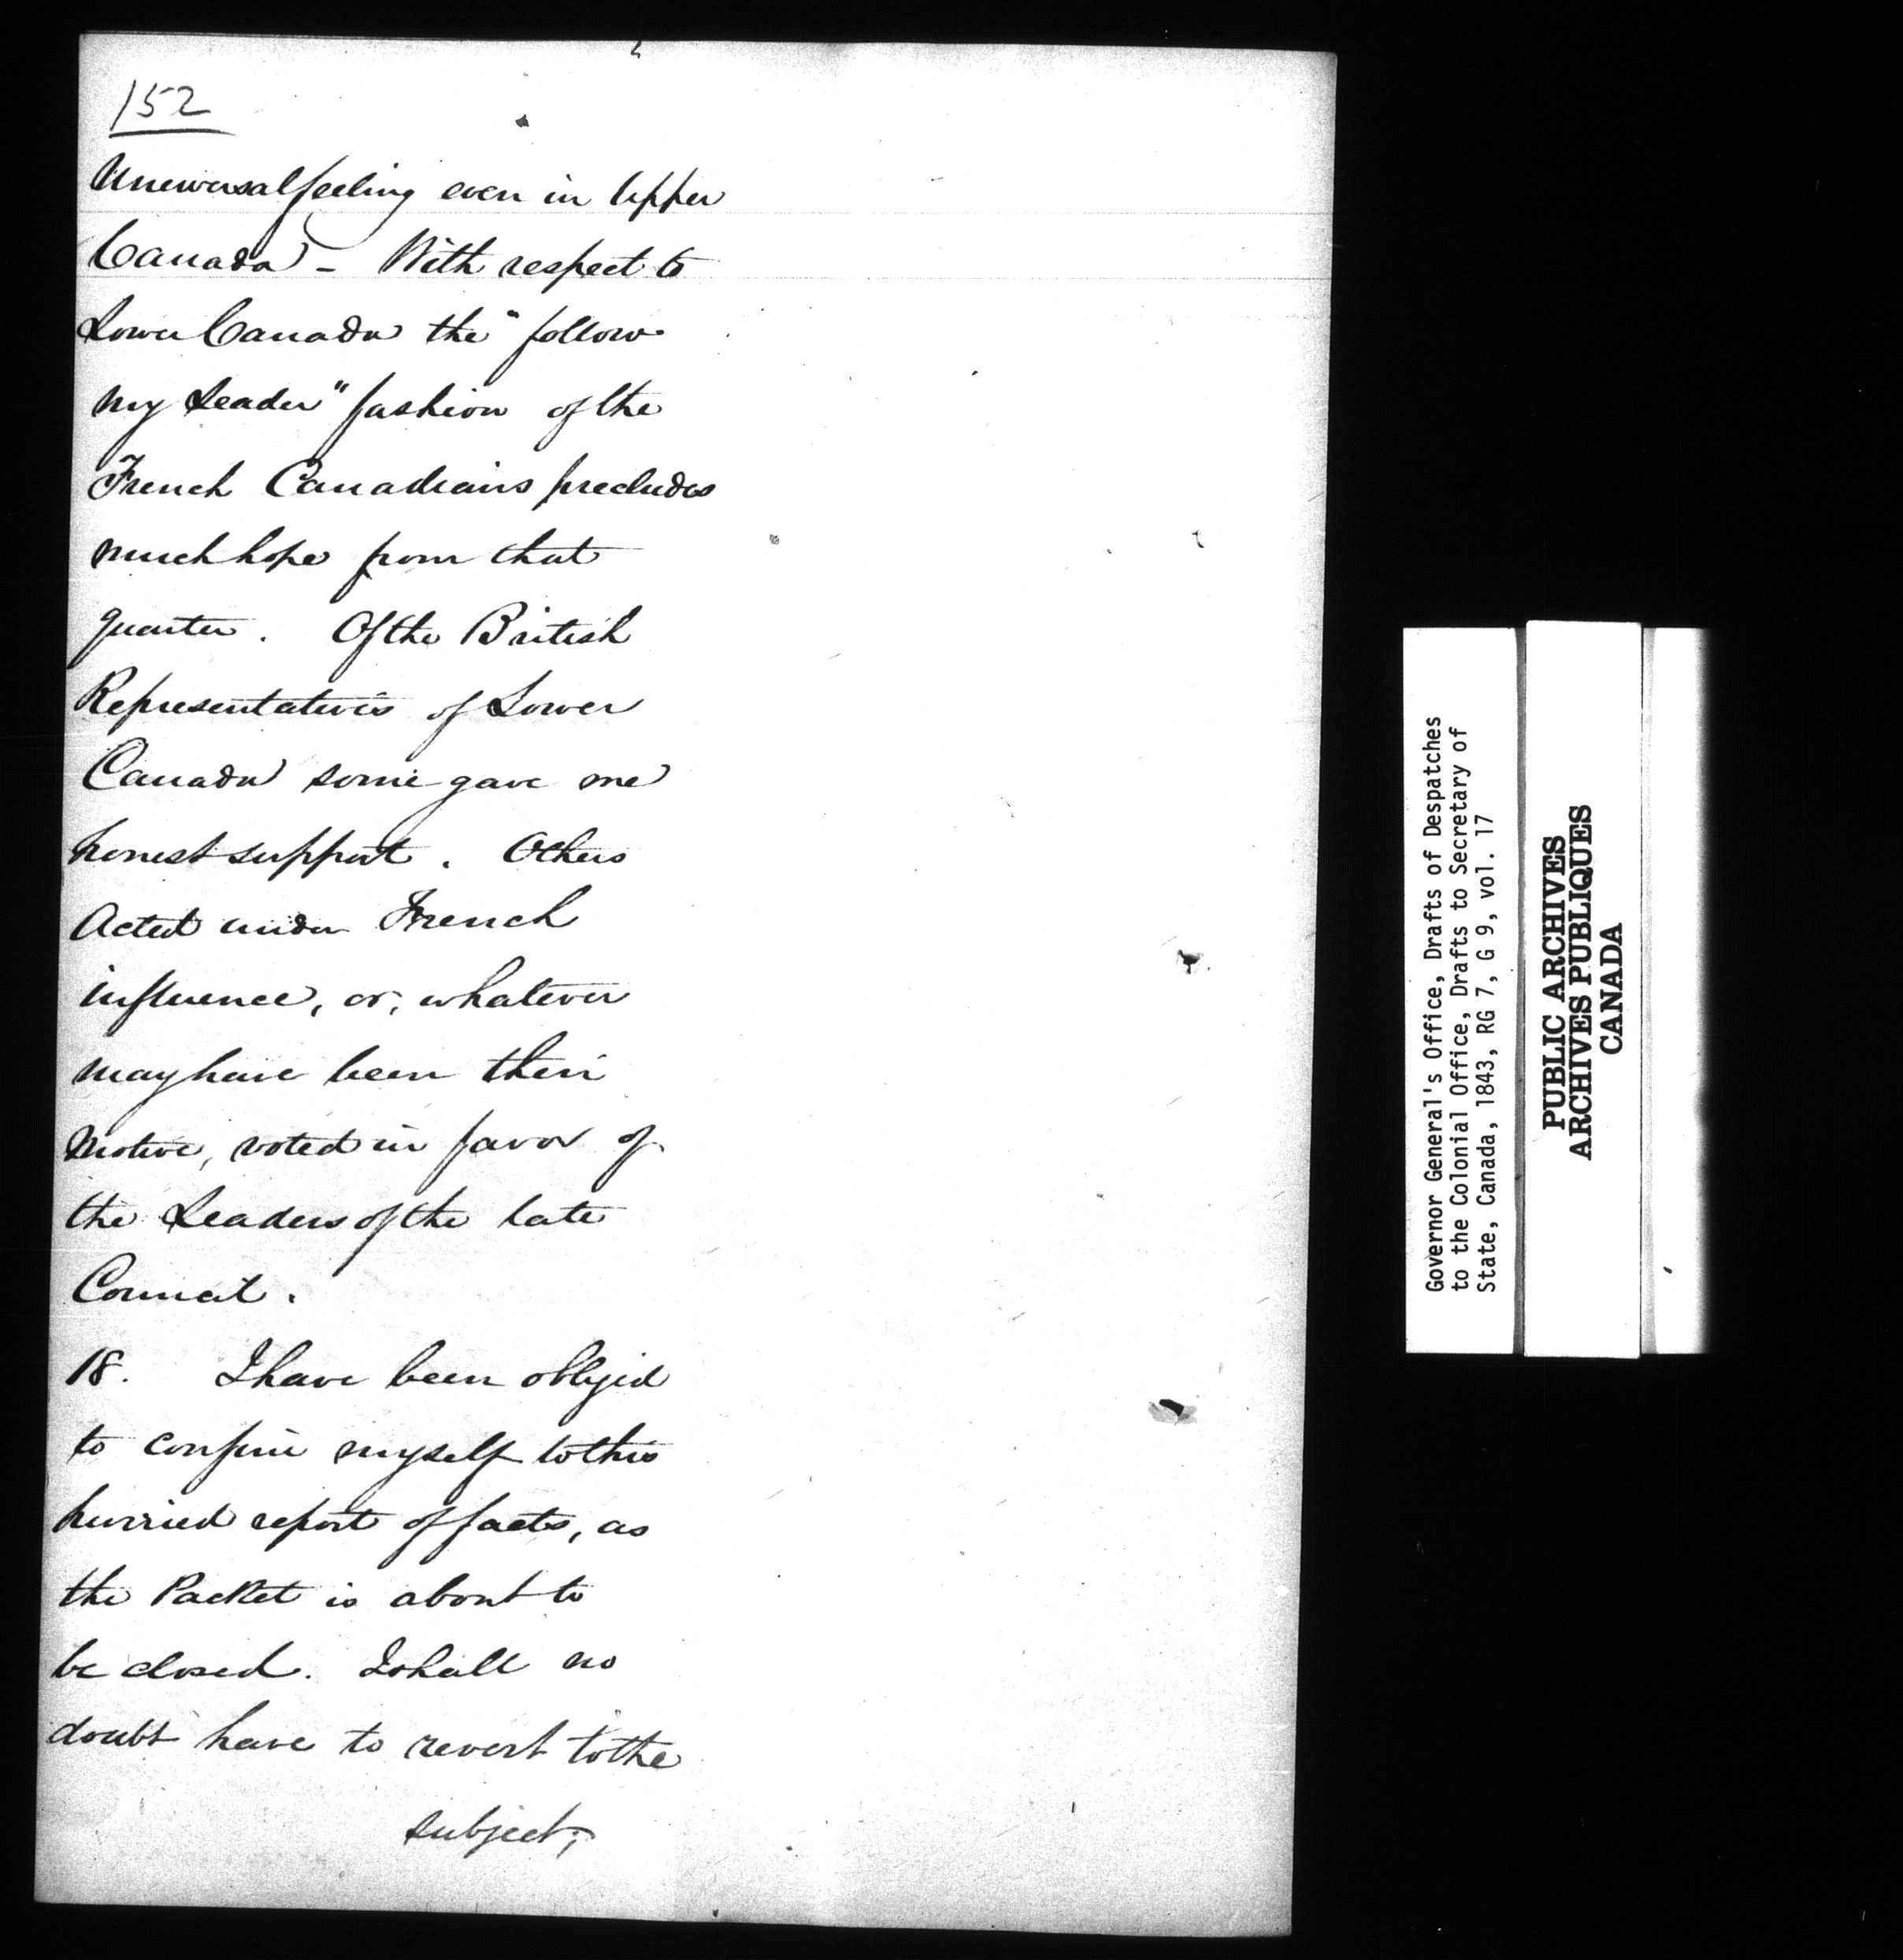 152
Universal feeling even in Upper
Canada - With respect to
Lower Canada the "follow
my Leader" fashion of the
French Canadians precludes
much hope from that
quarter. Of the British
Representatives of Lower
Canada some gave me
honest support. Others
Acted under French
influence, or, whatever
may have been their
Motive, voted in favor of
the Leaders of the late
Council.
18. I have been obliged
to confine myself to this
hurried report of facts, as
the Packet is about to
be closed. I shall no
doubt have to revert to the
subject;
Governor General's Office, Drafts of Despatches
to the Colonial Office, Drafts to Secretary of
State, Canada, 1843, RG 7, G 9, vol. 17
PUBLIC ARCHIVES
ARCHIVES PUBLIQUES
CANADA